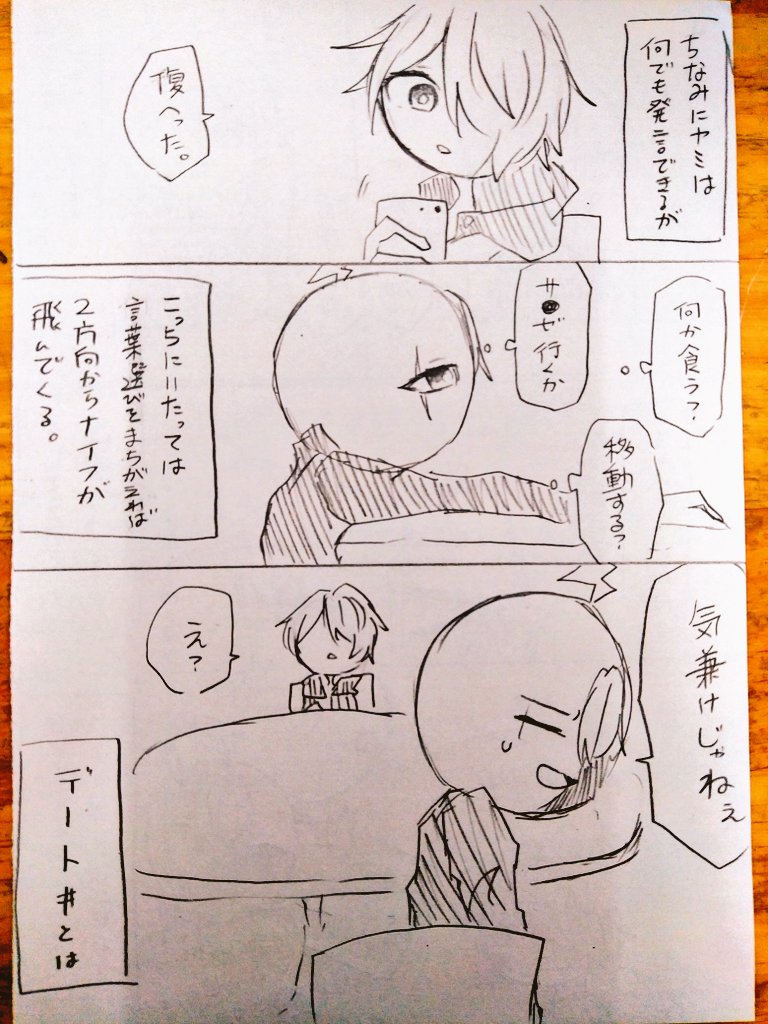 ちなみにヤミは
何でも発言できるが
復へった。
何か食う?
サ●ゼ行くか
移動する?
こっちにいたっては
言葉選びをまちがえれば
2方向からナイフが
飛んでくる。
気兼けじゃねぇ
え?
デート#とは